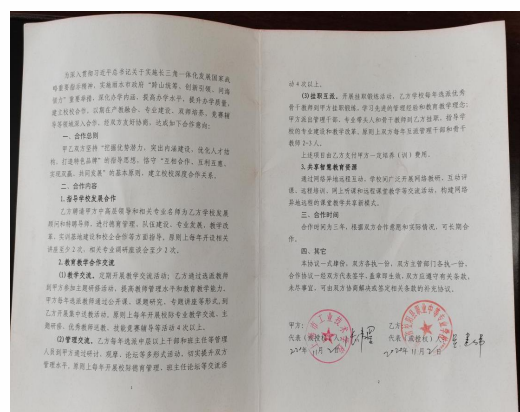 为深入贯彻习近平总书记关于实施长三角一体化发展国家战
略重要指示精神,
力"重要举措,深化办学内涵,提高办学水平,提升办学质量,
建立校校合作,以期在产教融合、专业建设、双师培养、竞赛辅
导等领域深入合作,经双方友好协商,达成如下合作意向:
一、合作总则
甲乙双方坚持"挖掘优势潜力,突出内涵建设,优化人才结
构,打造特色品牌"的指导思想,恪守"互相合作、互利互惠、
实现双赢、共同发展"的基本原则,建立校校深度合作关系。
二、合作内容
1.指导学校发展合作
乙方聘请甲方中高层领导和相关专业名师为乙方学校发展
顾问和特聘导师,进行教育管理、队伍建设、专业发展、教学改
革、实训基地建设和校企合作等方面指导,原则上每年开设相关
讲座至少2次,相关专业调研座谈会至少2次。
2.教育教学合作交流
(1)教学交流。定期开展教学交流活动;乙方通过选派教师
到甲方参加主题研修活动,提高教师管理水平和教育教学能力。
甲方每年选派教师通过公开课、课题研究、专题讲座等形式,到
乙方开展集中送教活动,原则上每年开展校际专业教学交流、主
题研修、优秀教师送教、技能竞赛辅导等活动4次以上。
(2)管理交流。乙方每年选派中层以上干部和班主任等管理
人员到甲方通过研讨、观摩、论坛等多形式活动,切实提升双方
管理水平。原则上每年开展校际德育管理、班主任论坛等交流活
动4次以上。
(3)挂职互派。开展挂职锻炼活动,乙方学校每年选派优秀
骨干教师到甲方挂职锻炼,学习先进的管理经验和教育教学理念;
甲方派出管理干部、专业带头人和骨干教师到乙方挂职,指导学
校的专业建设和教学改革。原则上双方每年互派管理干部和骨干
教师2-3人。
上述项目由乙方支付甲方一定培养(训)费用。
3.共享智慧教育资源
通过网络异地远程互动,学校间广泛开展网络教研、互动评
课、远程培训、网上听课和远程课堂教学等交流活动,构建网络
异地远程的课堂教学共享新模式。
三、合作时间
合作时间为三年,根据双方合作意愿和实际情况,可长期合
作。
四、其它
本协议一式肆份,双方各执一份,双方主管部门各执一份。
合作协议一经双方代表签字、盖章即生效,双方应遵守有关条款。
未尽事宜,可由双方协商解决或签定相关条款的补充协议。
甲方:
乙方:
代表(或授权)人:
代表(或授权)人:
2020年11月2日
2020年11月2日